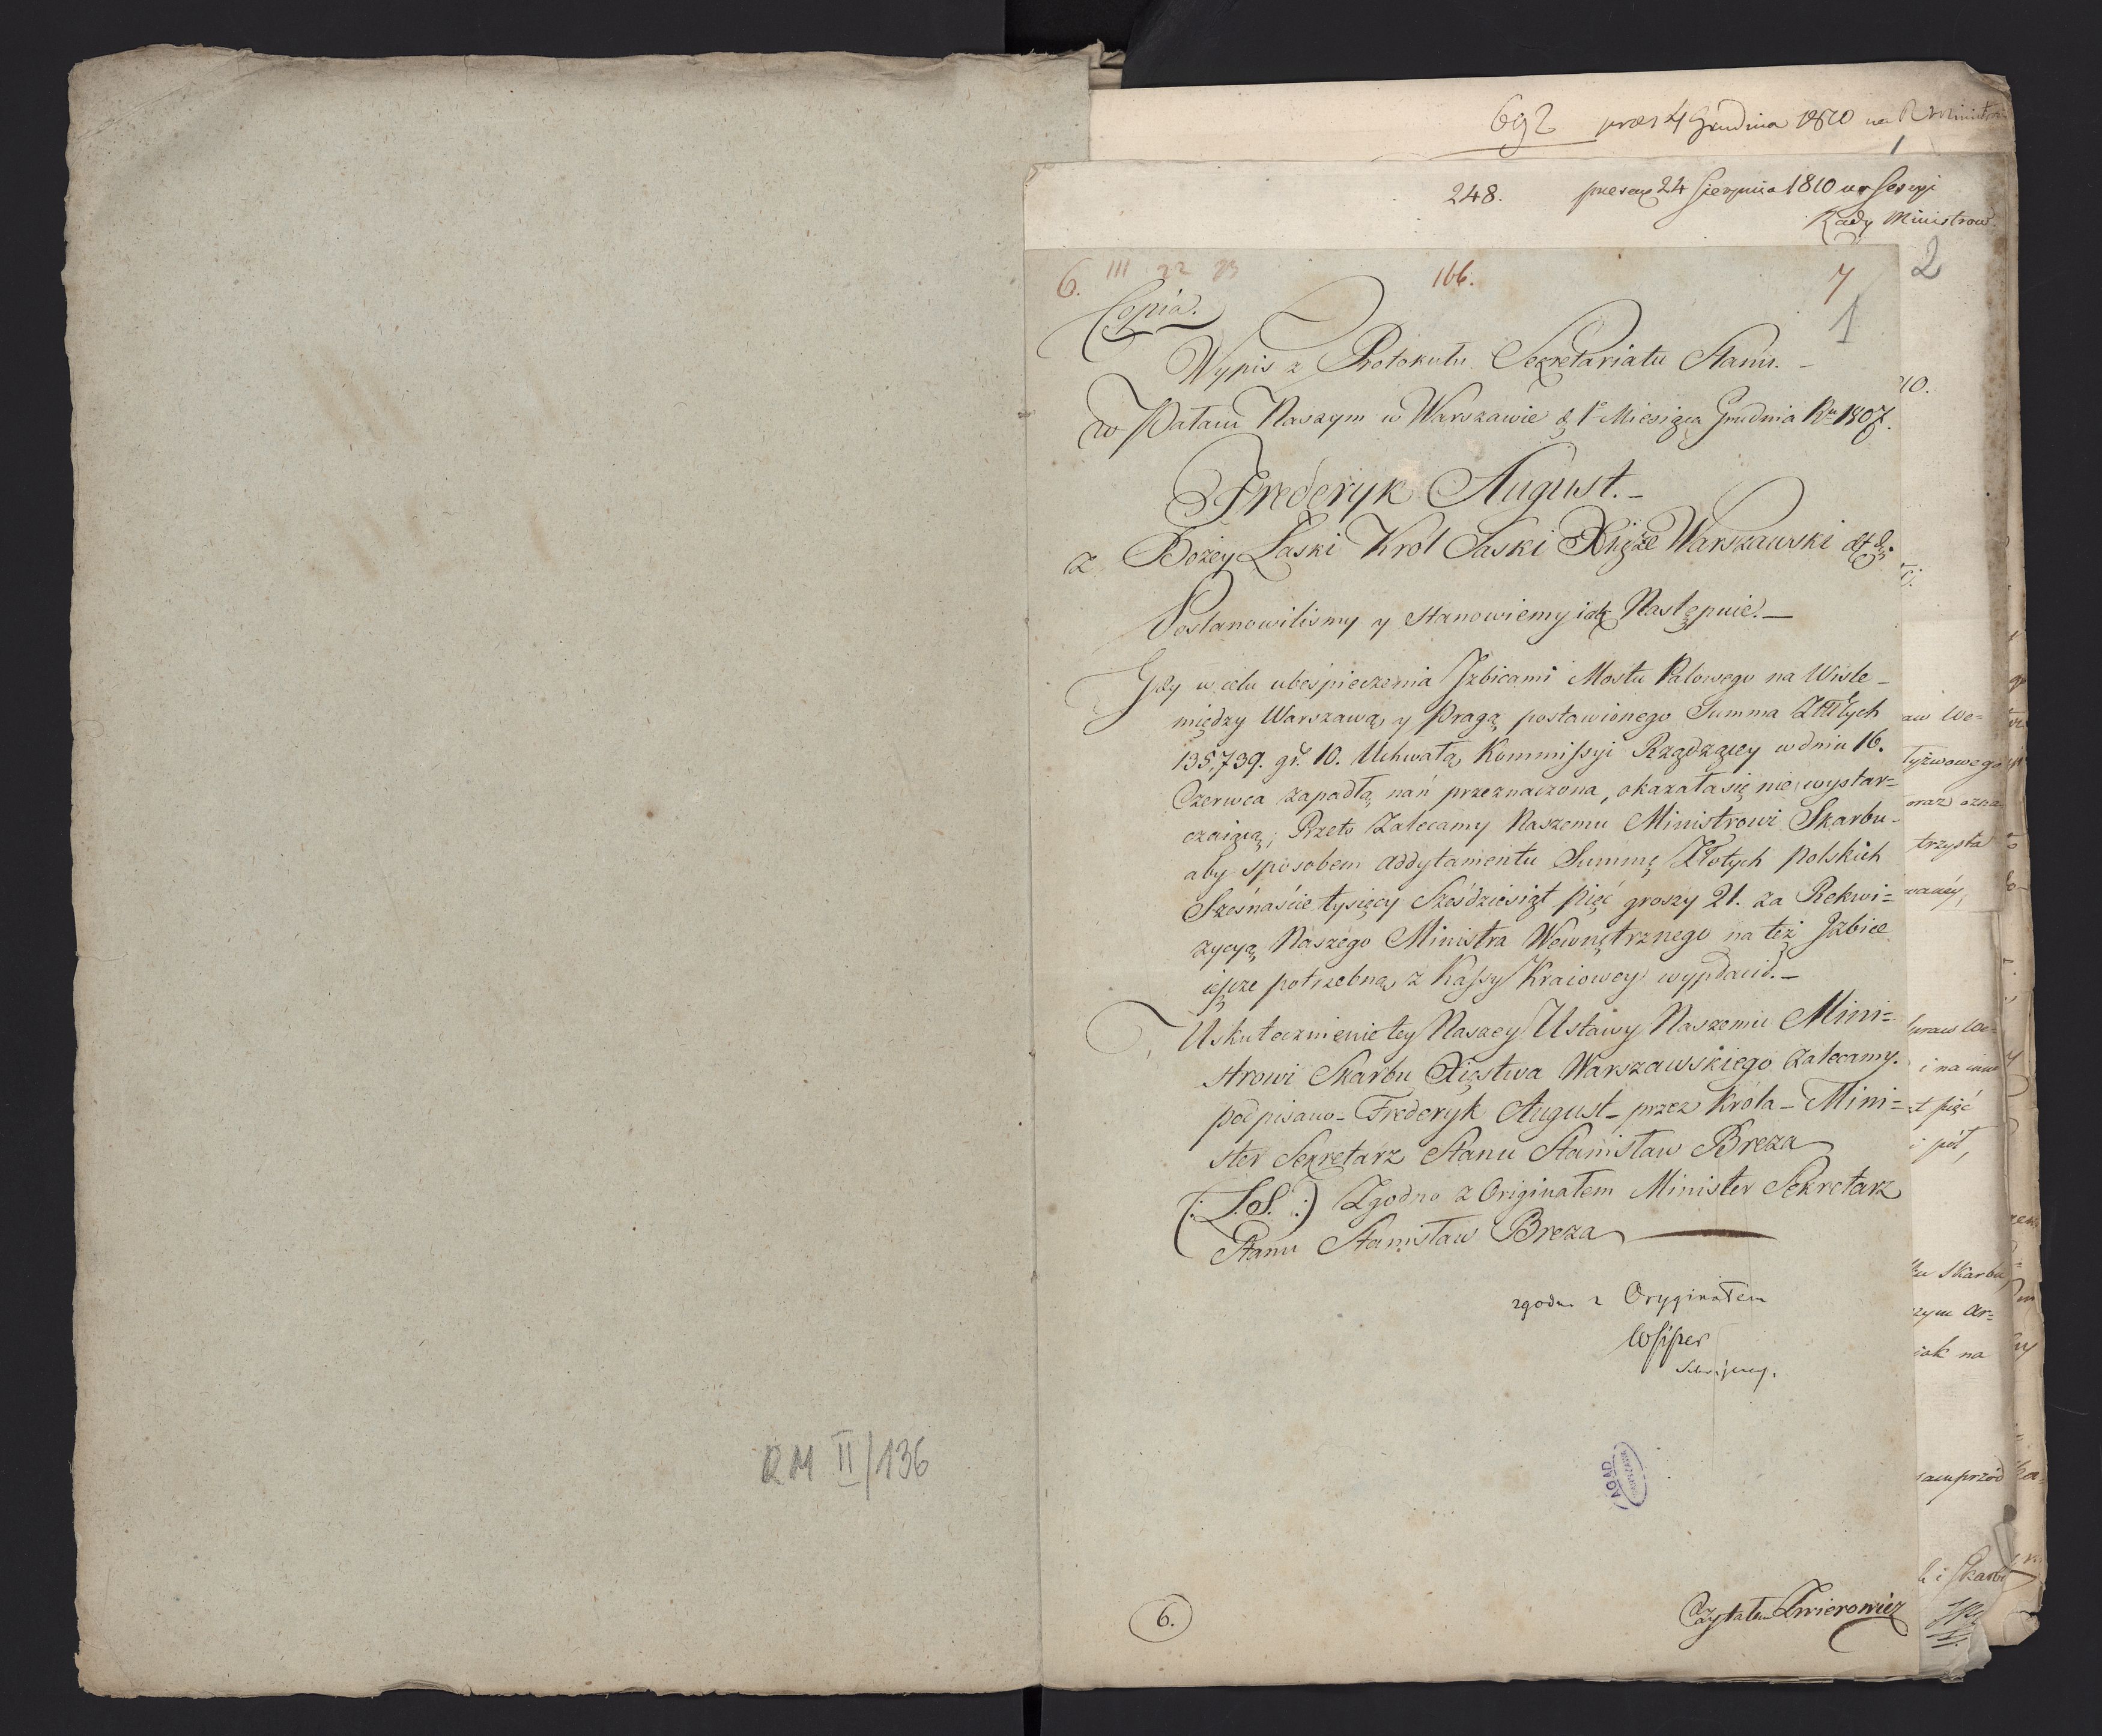 692 praes 4 Grudnia 1810 na R Ministr
1
248. praesen 24 Sierpnia 1810 na Sessyi
Rady Ministrow.
2
6. III 22 23 166. 7
1
Copia.
Wypis z Protokułu Sekretariatu Stanu. -
w Pałacu Naszym w Warszawie d. 1o Miesiąca Grudnia Ru 1807.
Frederyk August. -
z Bożey Łaski Krol Saski Xiąże Warszawski &&.
Postanowilismy y stanowiemy iak Następuie. -
Gdy w celu ubespieczenia Izbicami Mostu Palowego na Wisle -
między Warszawą y Pragą postawionego Summa Złłtych
135,739. gr. 10. Uchwałą Kommissyi Rządzącey w dniu 16.
Czerwca zapadłą nań przeznaczona, okazała się nie wystar=
czaiącą; Przeto Zalecamy Naszemu Ministrowi Skarbu -
aby sposobem addytamentu Summę Złotych polskich
Szesnaście tysięcy Sześdziesiąt pięć groszy 21. za Rekwi=
zycyą Naszego Ministra Wewnętrznego na też Izbice
ieszcze potrzebną z Kassy Kraiowey wypłacił. -
Uskutecznienie tey Naszey Ustawy Naszemu Mini=
strowi Skarbu Xięstwa Warszawskiego zalecamy.
podpisano - Frederyk August - przez Króla - Mini=
ster Sekretarz Stanu Stanisław Breza
(: L.S. :) Zgodno z Originałem Minister Sekretarz
Stanu Stanisław Breza
zgodn z Oryginałem
6. Czytałem Zwierowicz
RM II/136
AGAD
WARSZAWA
10.
aw We=
łyżwowego
oraz ozna
trzysta
waney,
praw We=
i na inne
t pięć
i pół,
Skarbu
zym ar=
iak na
i Skarbu